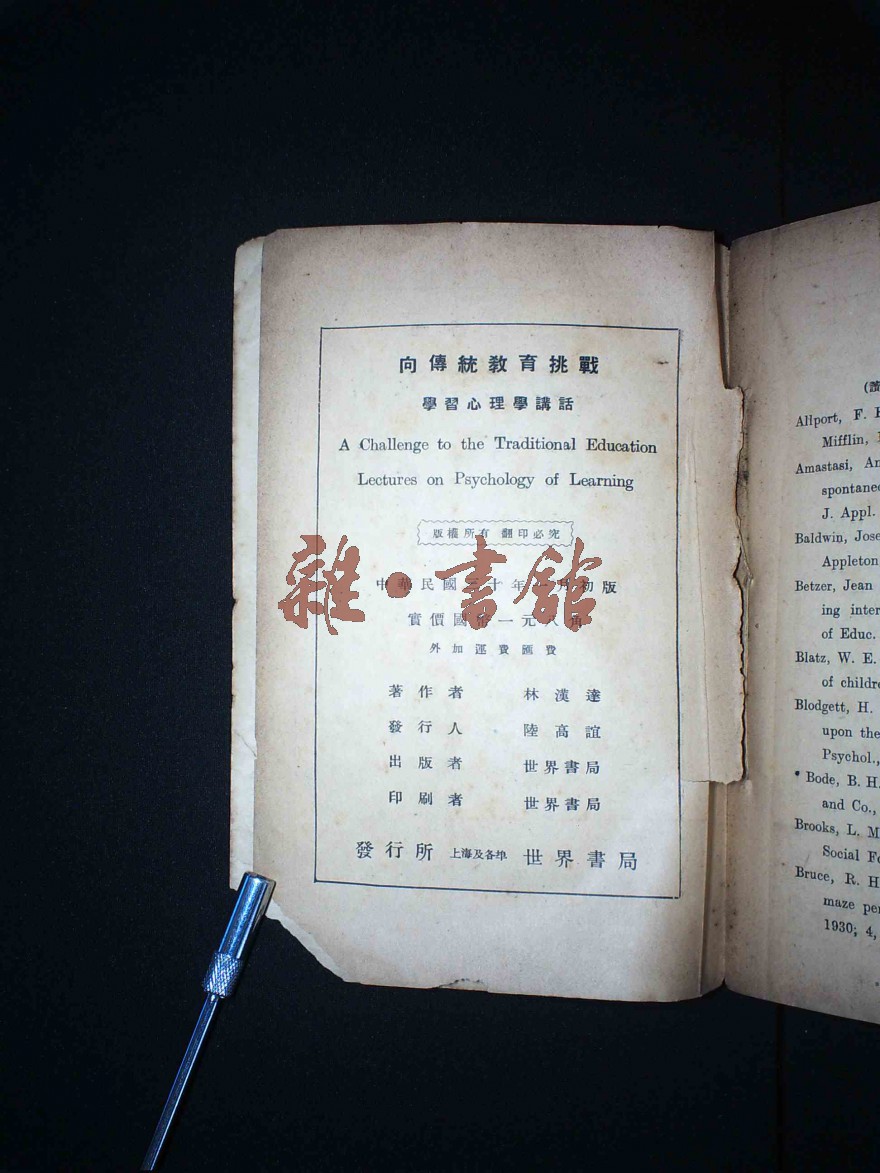 向傳統教育挑戰
學習心理學講話
A Challenge to the Traditional Education
Lectures on Psychology of Learning
版權所有 翻印必究
中華民國三十年 月初版
實價國幣一元八角
外加運費匯費
著作者 林漢達
發行人 陸高誼
出版者 世界書局
印刷者 世界書局
發行所 上海及各埠 世界書局
雜·書館
Allport, F.
Mifflin,
Amastasi, An
spontaneo
J. Appl.
Baldwin, Jose
Appleton
Betzer, Jean
ing inter
of Educ.
Blatz, W. E.
of childre
Blodgett, H.
upon the
Psychol.,
Bode, B. H.
and Co.,
Brooks, L. M
Social Fo
Bruce, R. H
maze per
1930; 4,